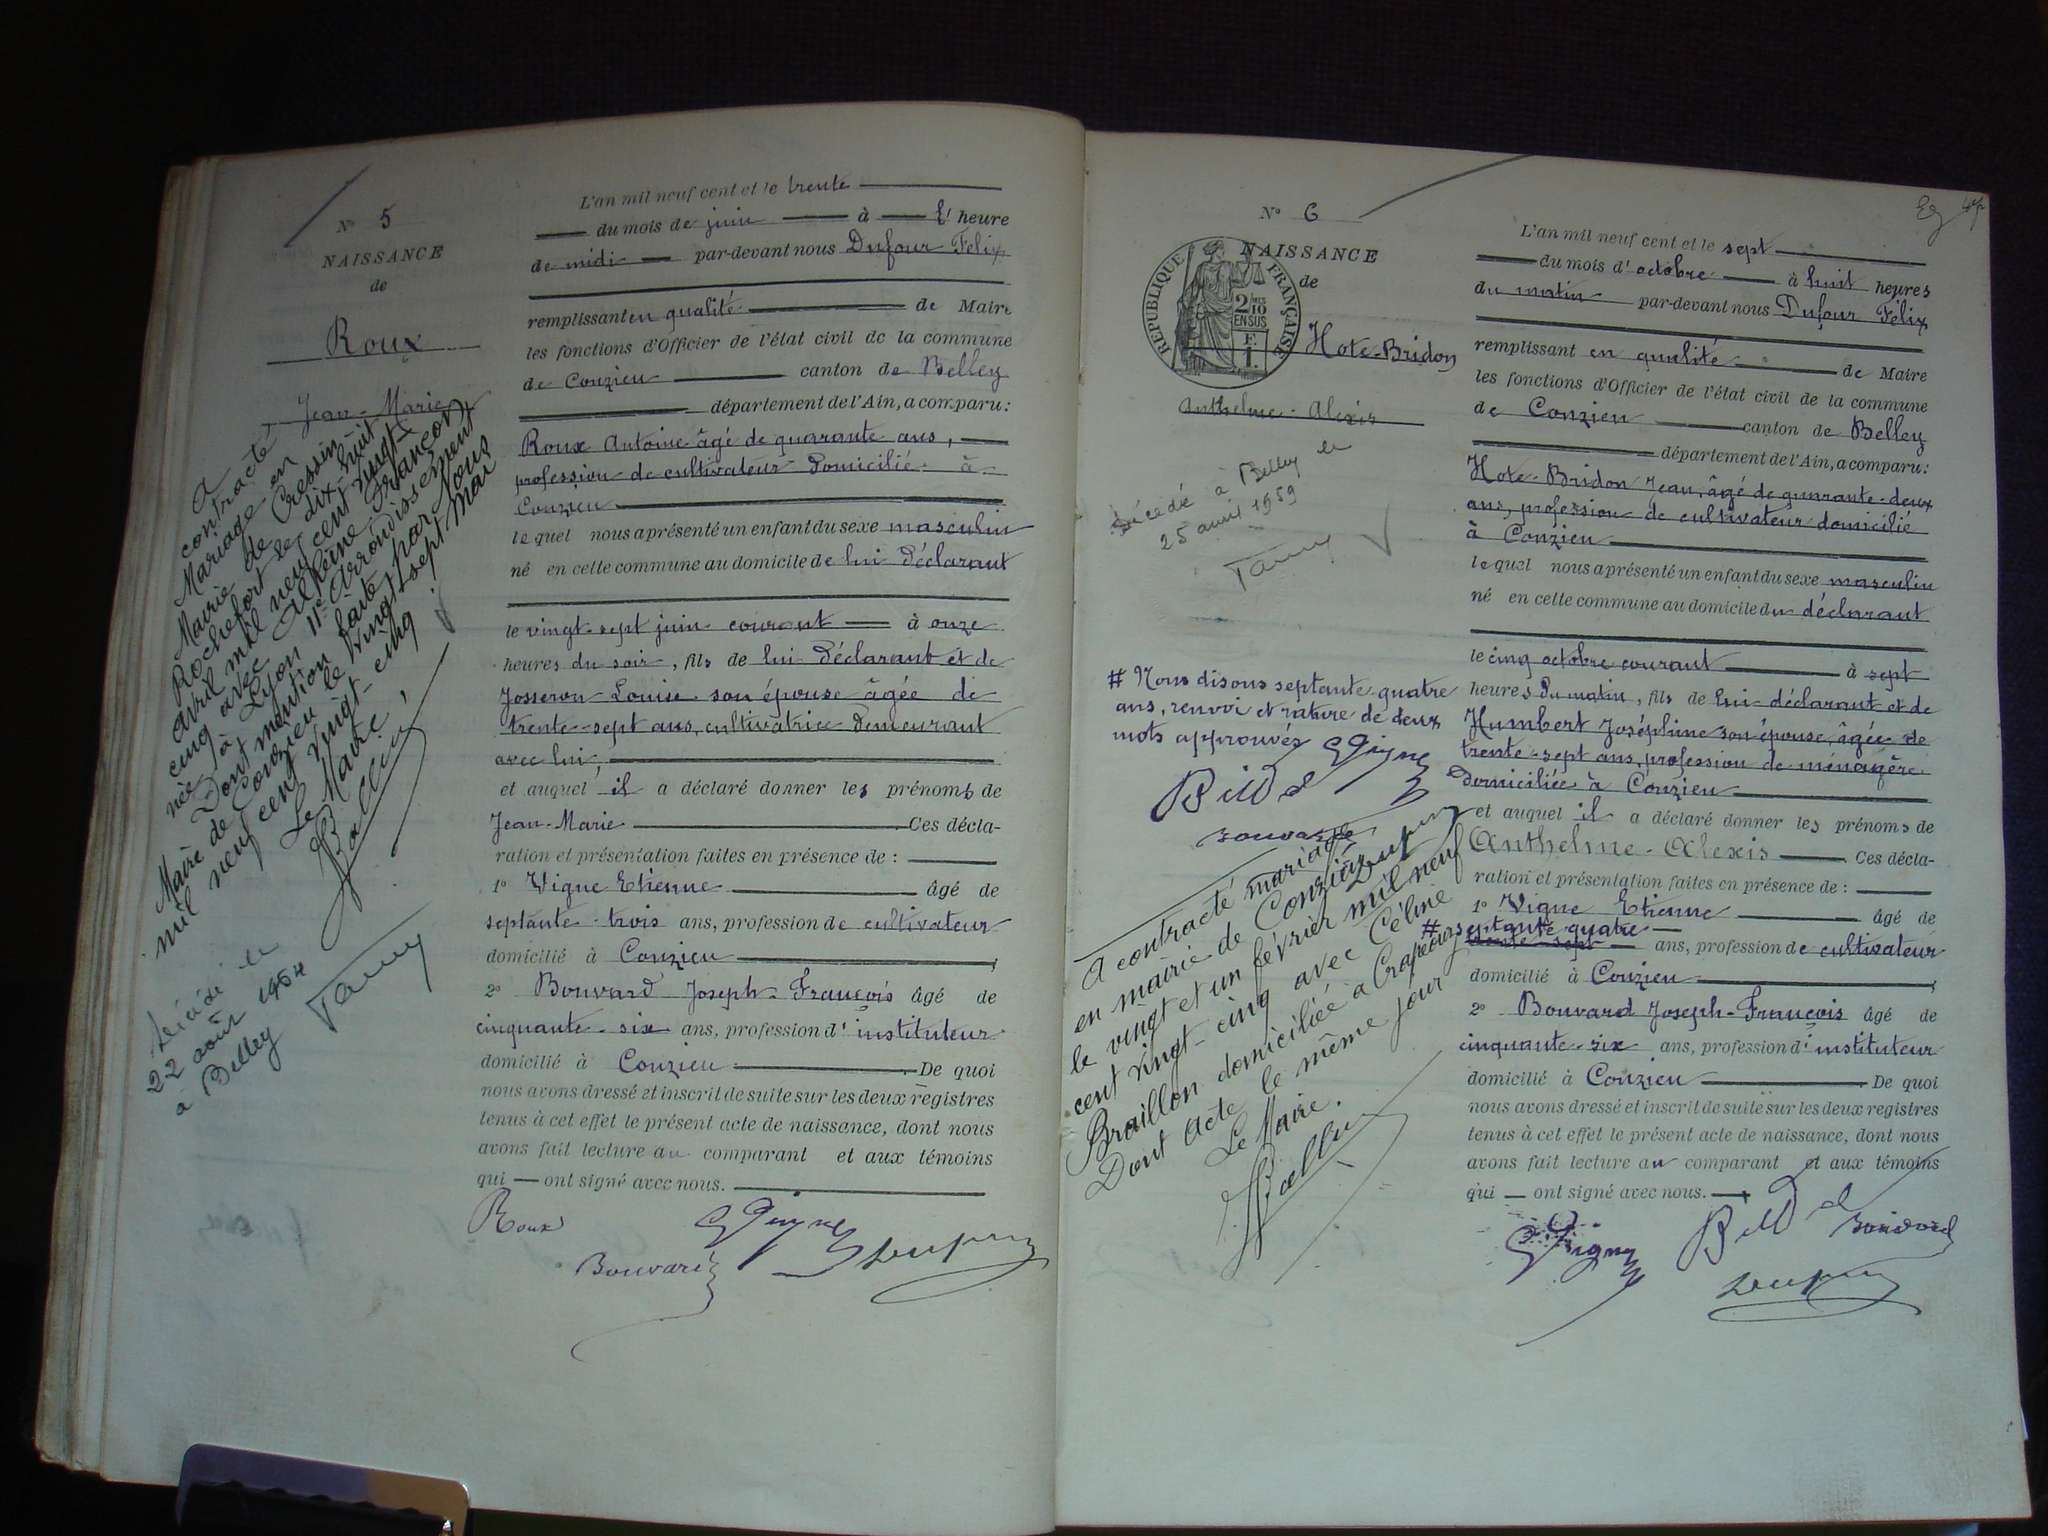 N° 5
NAISSANCE
de
Roux
Jean-Marie
A
contracté
Mariage en
Mairie de Cressin
Rochefort le dix-huit
avril mil neuf cent vingt-
cinq avec Alphéine Francon
née à Lyon 11e Arrondissement
Dont mention faite par Nous
Maire de Conzieu le Vingt sept Mai
mil neuf cent vingt-cinq
Le Maire,
Décédé le
22 août 1964
à Belley
L'an mil neuf cent et le trente
du mois de juin à l' heure
de midi par-devant nous Dufour Félix
remplissant en qualité de Maire
les fonctions d'Officier de l'état civil de la commune
de Conzieu canton de Belley
département de l'Ain, a comparu:
Roux Antoine âgé de quarante ans,
profession de cultivateur domicilié à
Conzieu
le quel nous a présenté un enfant du sexe masculin
né en cette commune au domicile de lui déclarant
le vingt-sept juin courant à onze
heures du soir, fils de lui déclarant et de
Josseron Louise son épouse âgée de
trente-sept ans, cultivatrice demeurant
avec lui,
et auquel il a déclaré donner les prénoms de
Jean-Marie Ces décla-
ration et présentation faites en présence de:
1° Vigne Etienne âgé de
septante-trois ans, profession de cultivateur
domicilié à Conzieu
2° Bouvard Joseph-François âgé de
cinquante-six ans, profession d'instituteur
domicilié à Conzieu De quoi
nous avons dressé et inscrit de suite sur les deux registres
tenus à cet effet le présent acte de naissance, dont nous
avons fait lecture au comparant et aux témoins
qui ont signé avec nous.
Roux Vigne
Bouvard Dufour
N° 6
NAISSANCE
de
RÉPUBLIQUE FRANÇAISE
2/10 EN SUS
Hote-Bridon
Anthelme-Alexis
Décédé à Belley le
25 avril 1959
# Nous disons septante quatre
ans, renvoi et rature de deux
mots approuvés Vigne
Bouvard
Dufour
A contracté mariage
en mairie de Conzieu
le vingt et un février mil neuf
cent vingt-cinq avec Céline
Braillon domiciliée à
Dont acte le même jour
Le Maire.
L'an mil neuf cent et le sept
du mois d'octobre à huit heures
du matin par-devant nous Dufour Félix
remplissant en qualité de Maire
les fonctions d'Officier de l'état civil de la commune
de Conzieu canton de Belley
département de l'Ain, a comparu:
Hote-Bridon Jean, âgé de quarante-deux
ans, profession de cultivateur domicilié
à Conzieu
le quel nous a présenté un enfant du sexe masculin
né en cette commune au domicile du déclarant
le cinq octobre courant à sept
heures du matin, fils de lui déclarant et de
Humbert Joséphine son épouse, âgée de
trente-sept ans, profession de ménagère
domiciliée à Conzieu
et auquel il a déclaré donner les prénoms de
Anthelme-Alexis Ces décla-
ration et présentation faites en présence de:
1° Vigne Etienne âgé de
# septante quatre
trente-sept ans, profession de cultivateur
domicilié à Conzieu
2° Bouvard Joseph-François âgé de
cinquante-six ans, profession d'instituteur
domicilié à Conzieu De quoi
nous avons dressé et inscrit de suite sur les deux registres
tenus à cet effet le présent acte de naissance, dont nous
avons fait lecture au comparant et aux témoins
qui ont signé avec nous.
Vigne Bouvard
Dufour